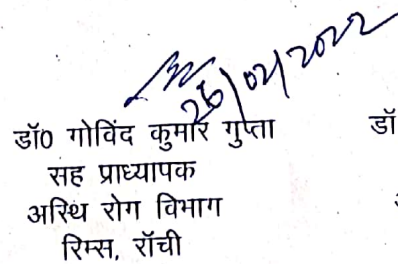 26/02/2022
डॉ0 गोविंद कुमार गुप्ता डॉ
सह प्राध्यापक
अस्थि रोग विभाग
रिम्स, राँची